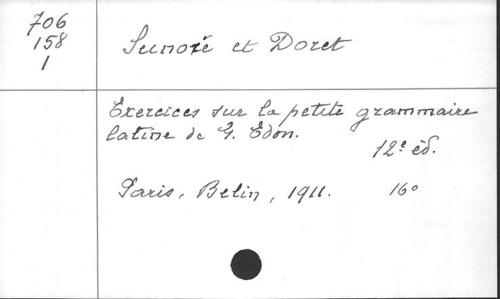 706
158
1
Sunoié et Doret
Exercices sur la petite grammaire
latine de G. Edon.
12e éd.
Paris, Belin, 1911.
16o